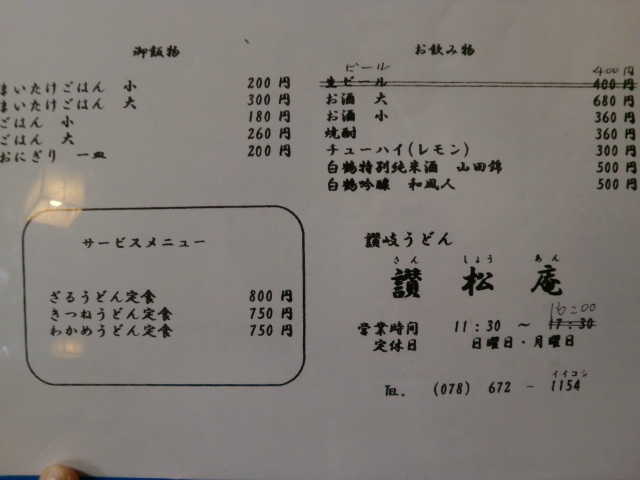 御飯物
まいたけごはん 小 200 円
まいたけごはん 大 300 円
ごはん 小 180 円
ごはん 大 260 円
おにぎり 一皿 200 円
お飲み物
ビール 400円
生ビール 400 円
お酒 大 680 円
お酒 小 360 円
焼酎 360 円
チューハイ(レモン) 300 円
白鶴特別純米酒 山田錦 500 円
白鶴吟醸 和風人 500 円
サービスメニュー
ざるうどん定食 800 円
きつねうどん定食 750 円
わかめうどん定食 750 円
讃岐うどん
さん しょう あん
讃 松 庵
16:00
営業時間 11:30 ~ 17:30
定休日 日曜日・月曜日
イイコシ
TEL. (078) 672 - 1154